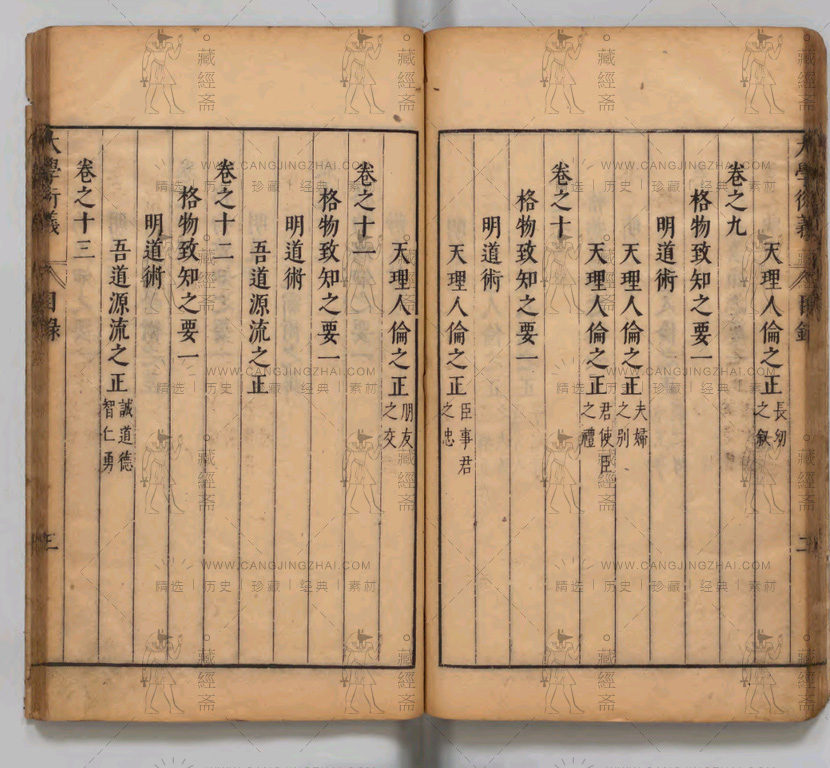 大學衍義 目錄 二
天理人倫之正 長幼之叙
卷之九
格物致知之要一
明道術
天理人倫之正 夫婦之別
天理人倫之正 君使臣之禮
卷之十
格物致知之要一
明道術
天理人倫之正 臣事君之忠
天理人倫之正 朋友之交
卷之十一
格物致知之要一
明道術
吾道源流之正
卷之十二
格物致知之要一
明道術
吾道源流之正 誠道德智仁勇
卷之十三
大學衍義 目錄
藏經斋
WWW.CANGJINGZHAI.COM
精选|历史|珍藏|经典|素材